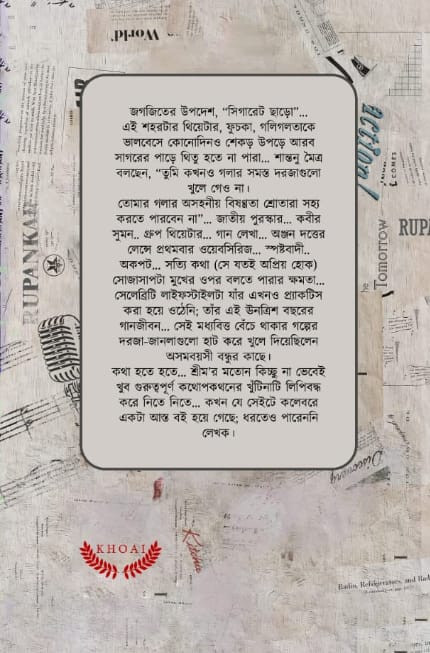 World'
জগজিতের উপদেশ, “সিগারেট ছাড়ো”...
এই শহরটার থিয়েটার, ফুচকা, গলিগলতাকে
ভালবেসে কোনোদিনও শেকড় উপড়ে আরব
সাগরের পাড়ে থিতু হতে না পারা... শান্তনু মৈত্র
বলছেন, “তুমি কখনও গলার সমস্ত দরজাগুলো
খুলে গেও না।
তোমার গলার অসহনীয় বিষণ্ণতা শ্রোতারা সহ্য
করতে পারবেন না”... জাতীয় পুরস্কার... কবীর
সুমন.. গ্রুপ থিয়েটার... গান লেখা... অঞ্জন দত্তের
লেন্সে প্রথমবার ওয়েবসিরিজ... স্পষ্টবাদী..
অকপট... সত্যি কথা (সে যতই অপ্রিয় হোক)
সোজাসাপটা মুখের ওপর বলতে পারার ক্ষমতা...
সেলেব্রিটি লাইফস্টাইলটা যাঁর এখনও প্র্যাকটিস
করা হয়ে ওঠেনি; তাঁর এই ঊনত্রিশ বছরের
গানজীবন... সেই মধ্যবিত্ত বেঁচে থাকার গল্পের
দরজা-জানলাগুলো হাট করে খুলে দিয়েছিলেন
অসমবয়সী বন্ধুর কাছে।
কথা হতে হতে... শ্রীম’র মতোন কিচ্ছু না ভেবেই
খুব গুরুত্বপূর্ণ কথোপকথনের খুঁটিনাটি লিপিবদ্ধ
করে নিতে নিতে... কখন যে সেইটে কলেবরে
একটা আস্ত বই হয়ে গেছে; ধরতেও পারেননি
লেখক।
RUPANKAR
Action!
COMES
RUPA
Tomorrow
Discovery
KHOAI
Radio, Refrigerators, and Rad